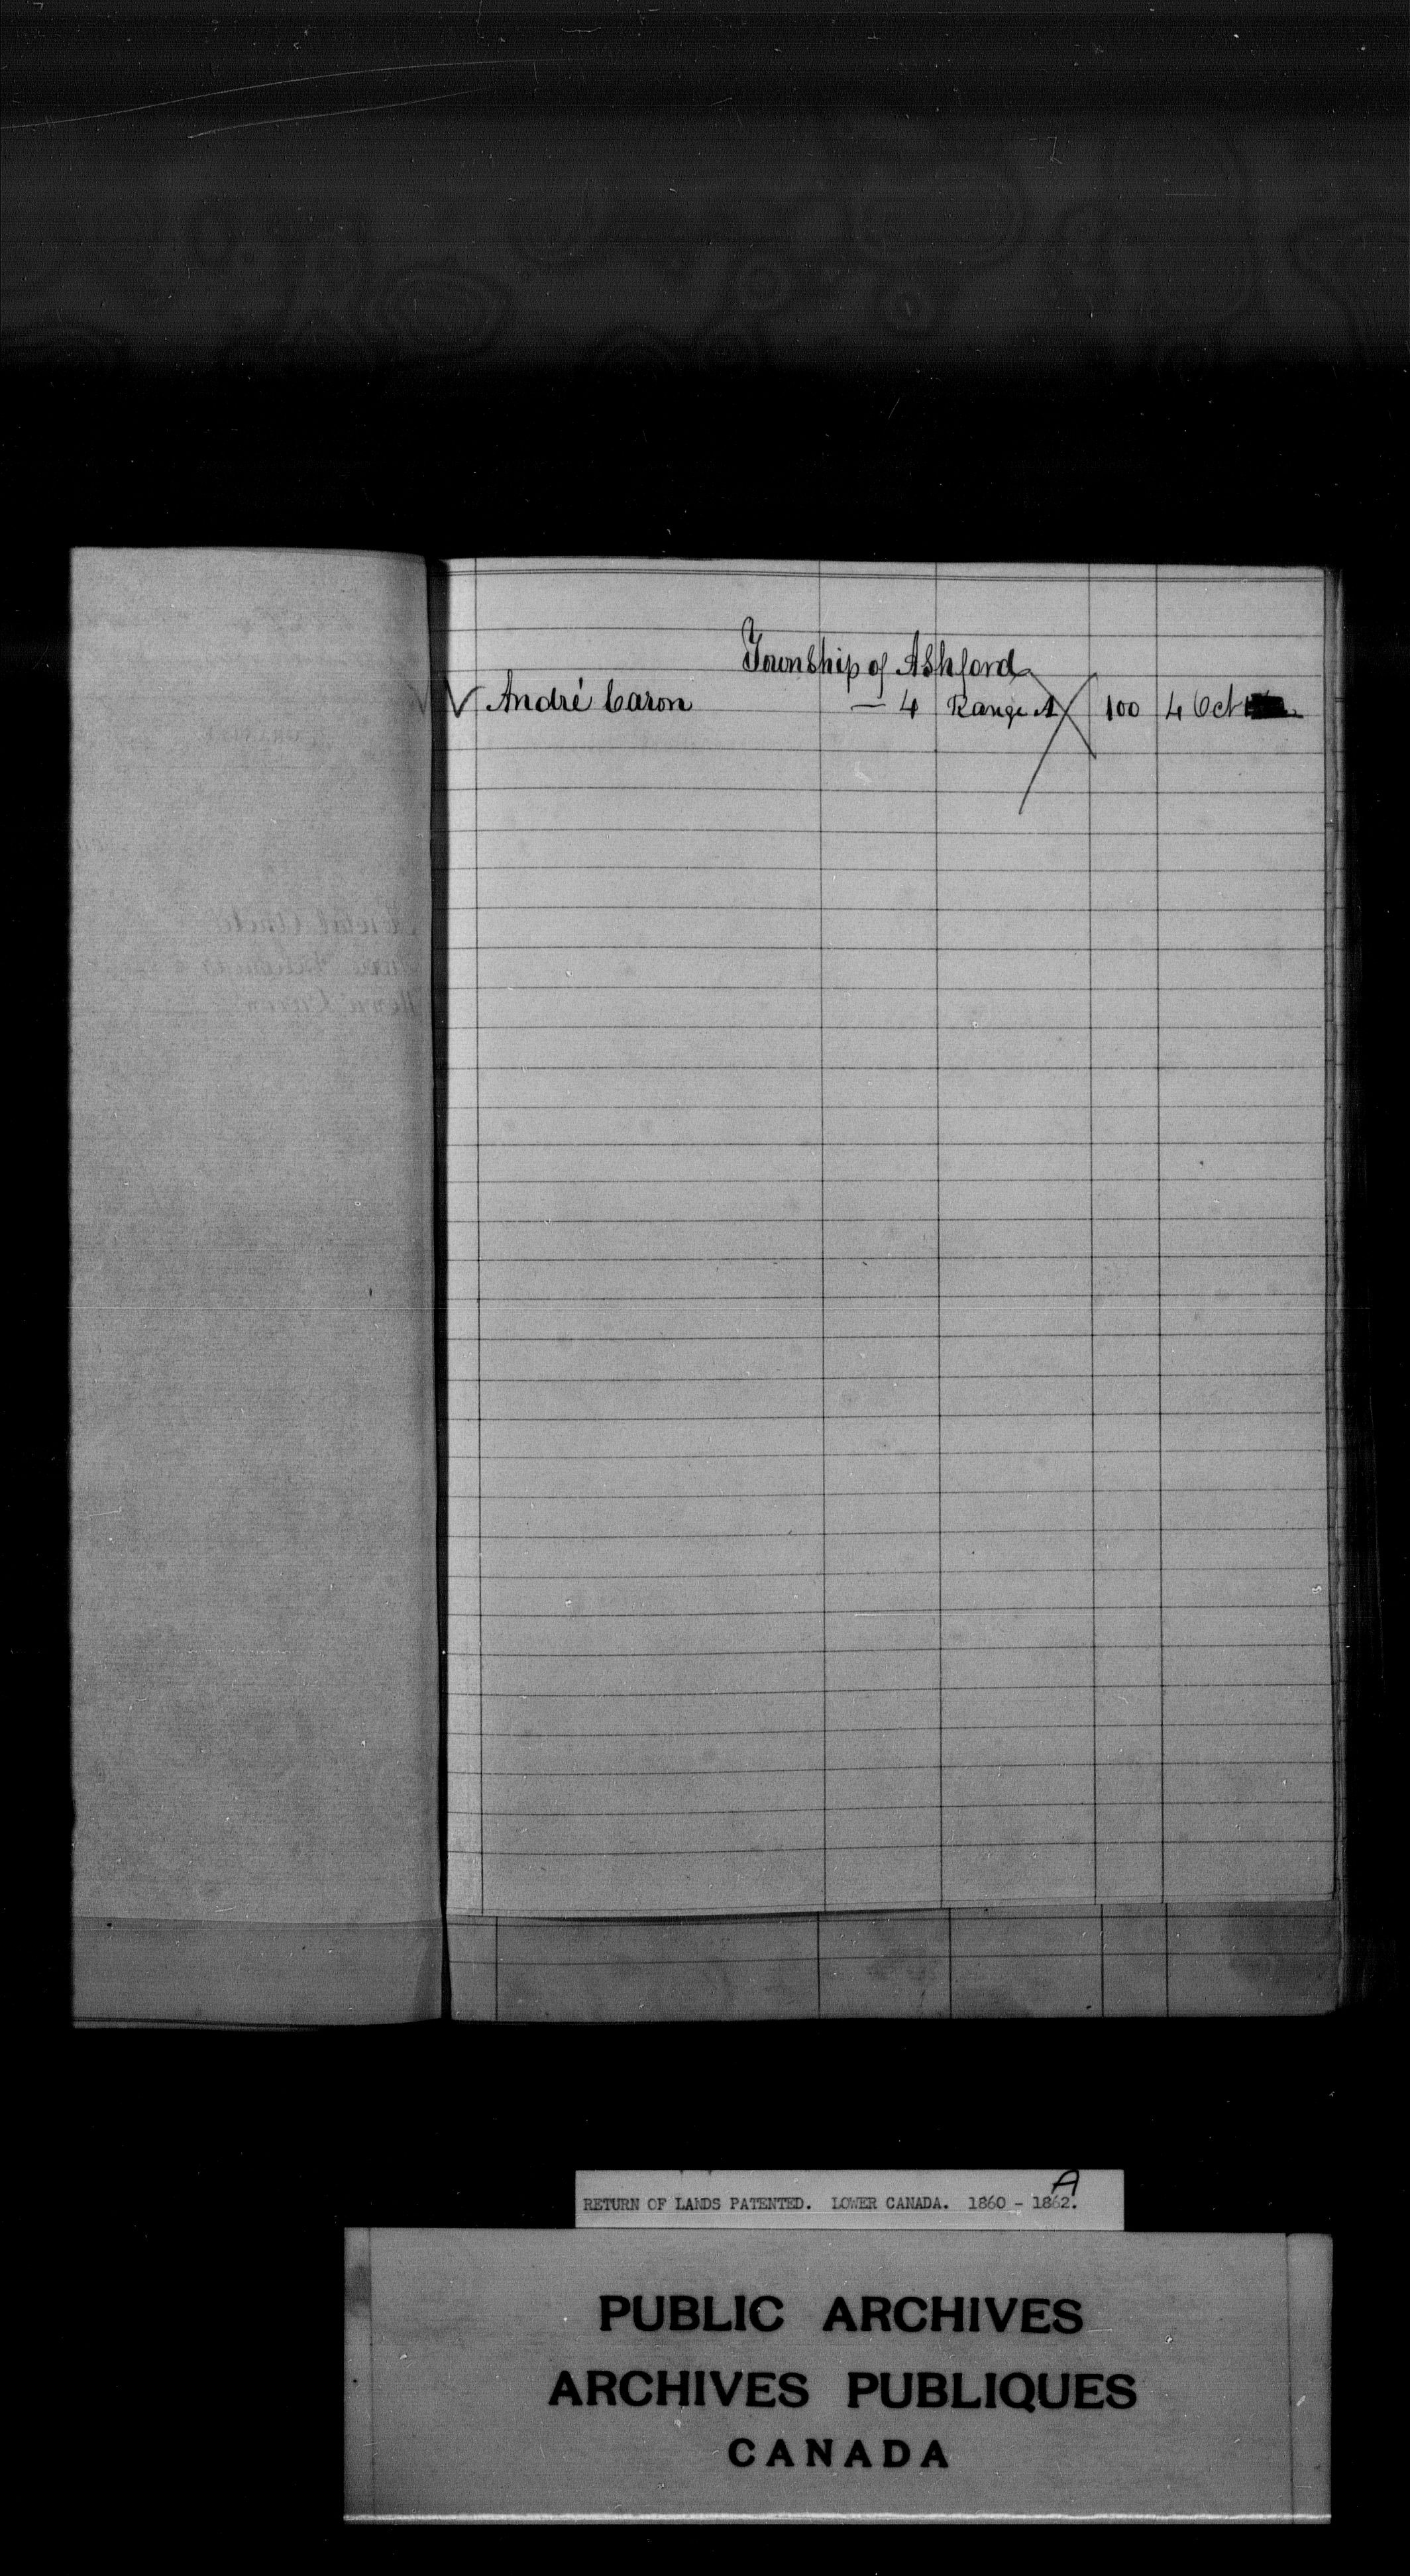 Township of Ashford
André Caron — 4 Range A 100 4 Oct
A
RETURN OF LANDS PATENTED. LOWER CANADA. 1860 - 1862.
PUBLIC ARCHIVES
ARCHIVES PUBLIQUES
CANADA